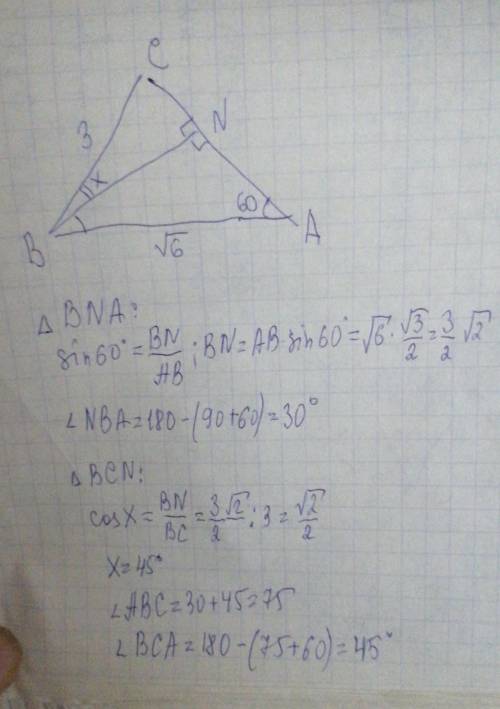 C
3
N
x
60
B
√6
A
△ BNA:
sin60° = BN/AB ; BN = AB·sin60° = √6 · √3/2 = 3/2 √2
∠NBA = 180 - (90+60) = 30°
△ BCN:
cosx = BN/BC = 3√2/2 : 3 = √2/2
x = 45°
∠ABC = 30 + 45 = 75
∠BCA = 180 - (75+60) = 45°